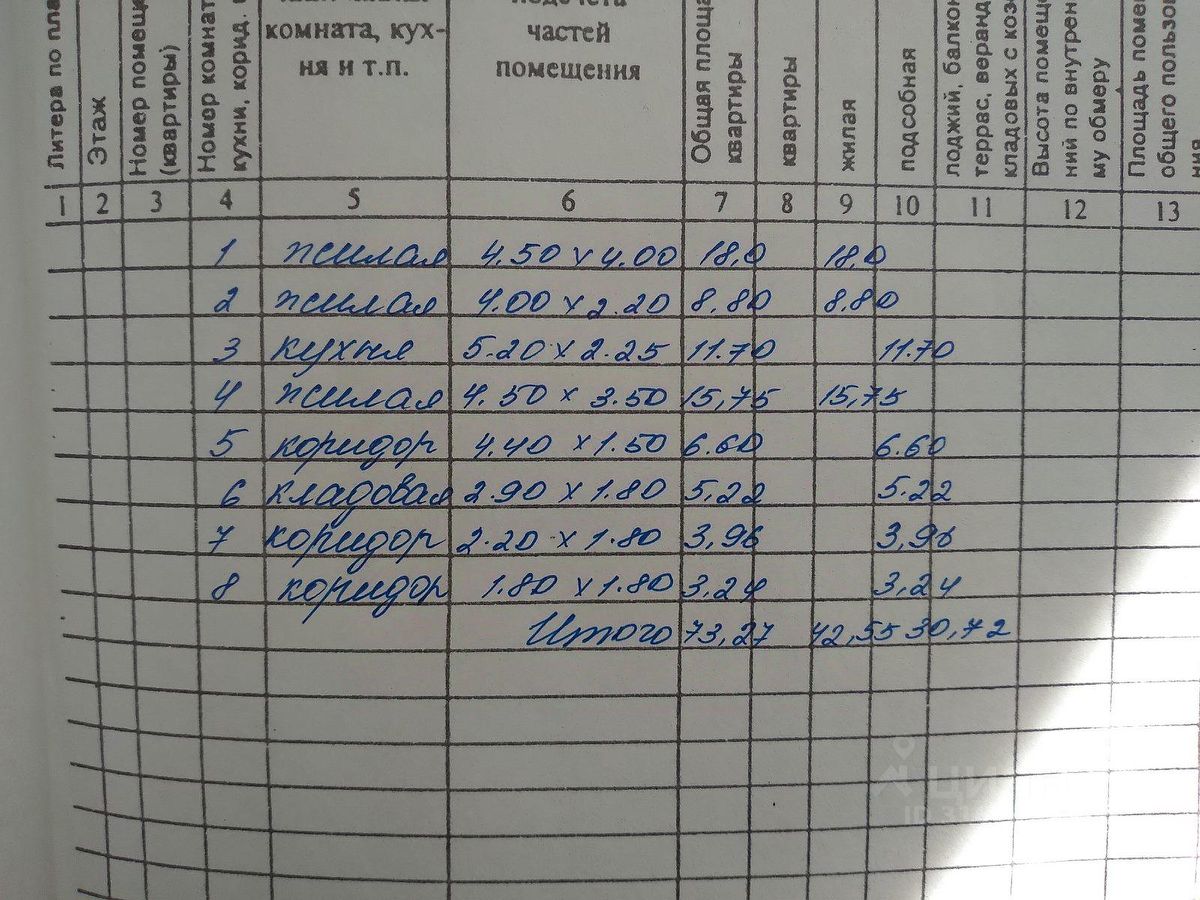 комната, кух-
ня и т.п.
частей
помещения
Литера по
Этаж
Номер
(квартиры)
Номер
кухни, корид.
Общая
квартиры
квартиры
жилая
подсобная
лоджий,
террас,
кладовых с
Высота
ний по
му обмеру
Площадь
общего
ния
1 2 3 4 5 6 7 8 9 10 11 12 13
1 жилая 4.50 х 4.00 18,0 18,0
2 жилая 4.00 х 2.20 8.80 8.80
3 кухня 5.20 х 2.25 11.70 11.70
4 жилая 4.50 х 3.50 15,75 15,75
5 коридор 4.40 х 1.50 6.60 6.60
6 кладовая 2.90 х 1.80 5,22 5.22
7 коридор 2.20 х 1.80 3,96 3,96
8 коридор 1.80 х 1.80 3,24 3,24
Итого 73,27 42,55 30,72